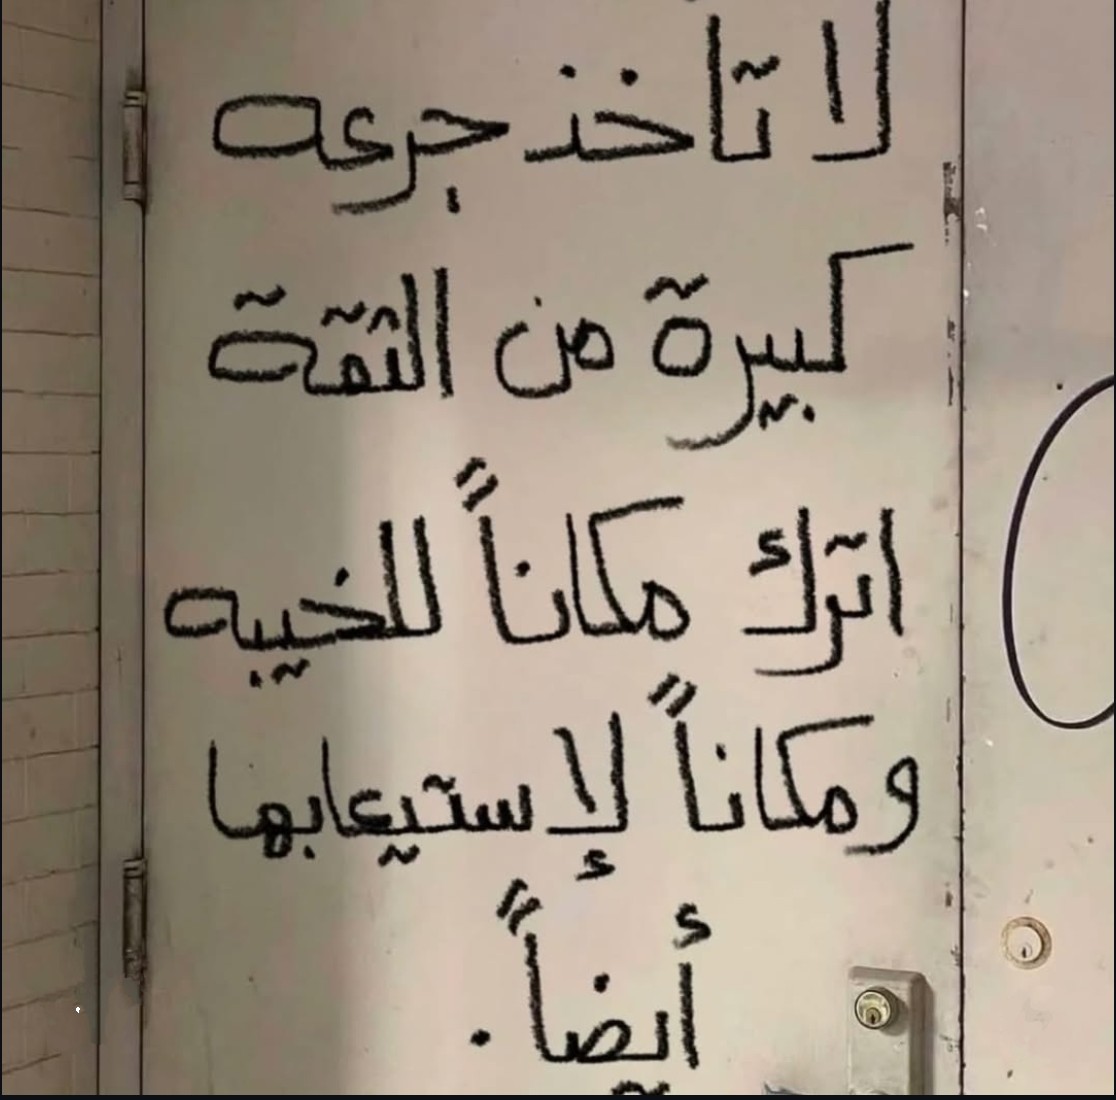 لا تأخذ جرعه
كبيرة من الثقة
اترك مكاناً للخيبه
ومكاناً لإستيعابها
أيضاً .